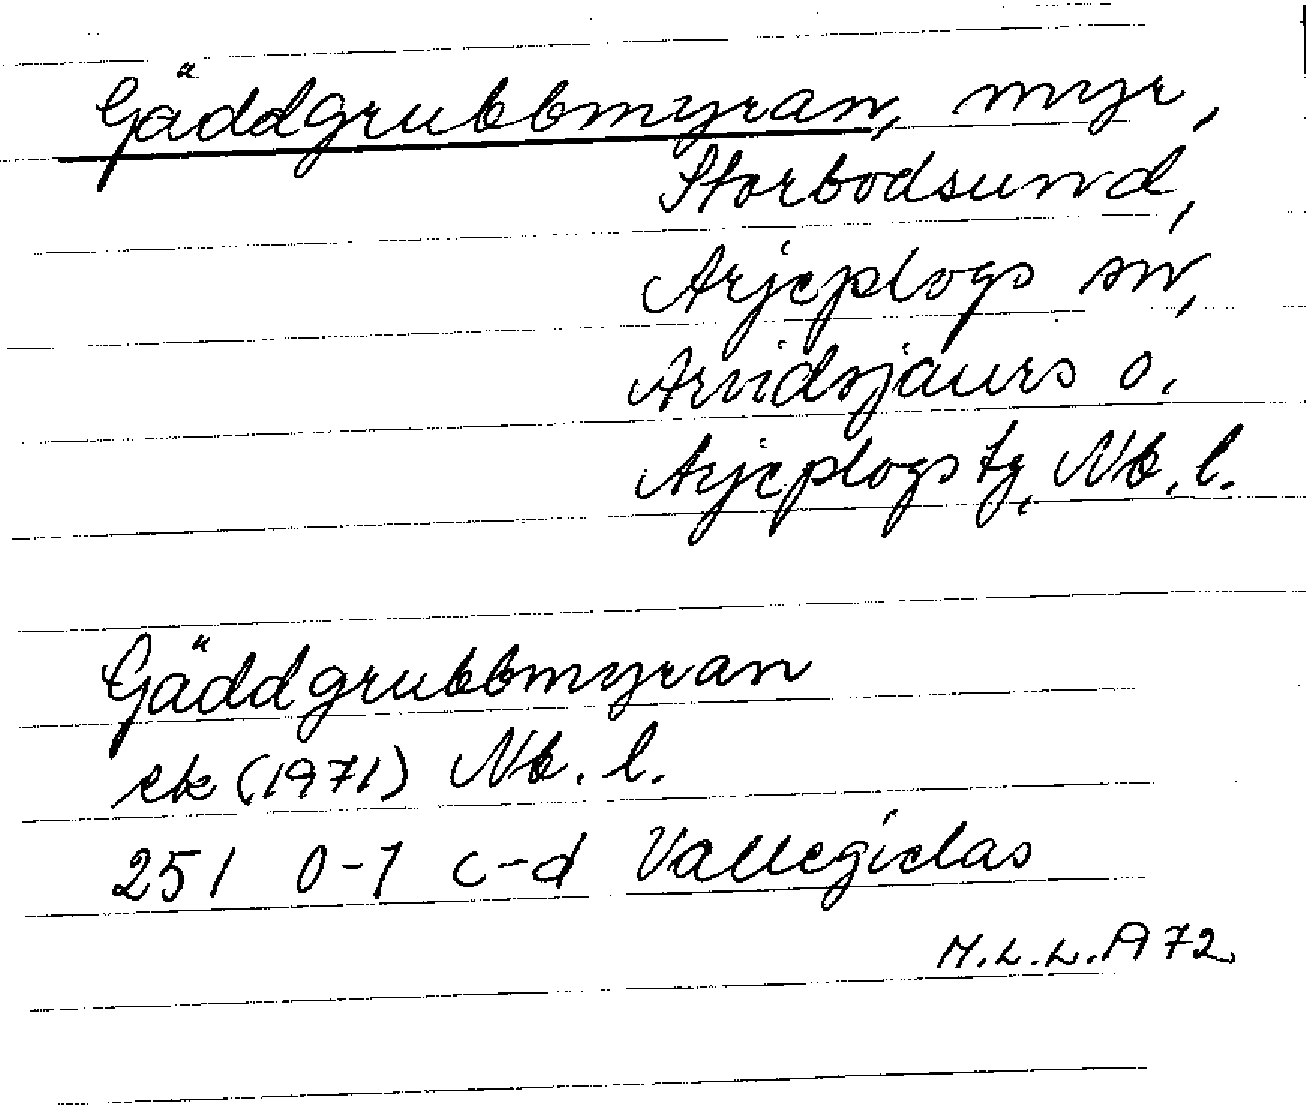 Gäddgrubbmyran, myr,
Storbodsund,
Arjeplogs sn,
Arvidsjaurs o.
Arjeplogs tg, Nb. l.
Gäddgrubbmyran
ek (1971) Nb. l.
251 0-1 c-d Vallegielas
M.L.L.A 72